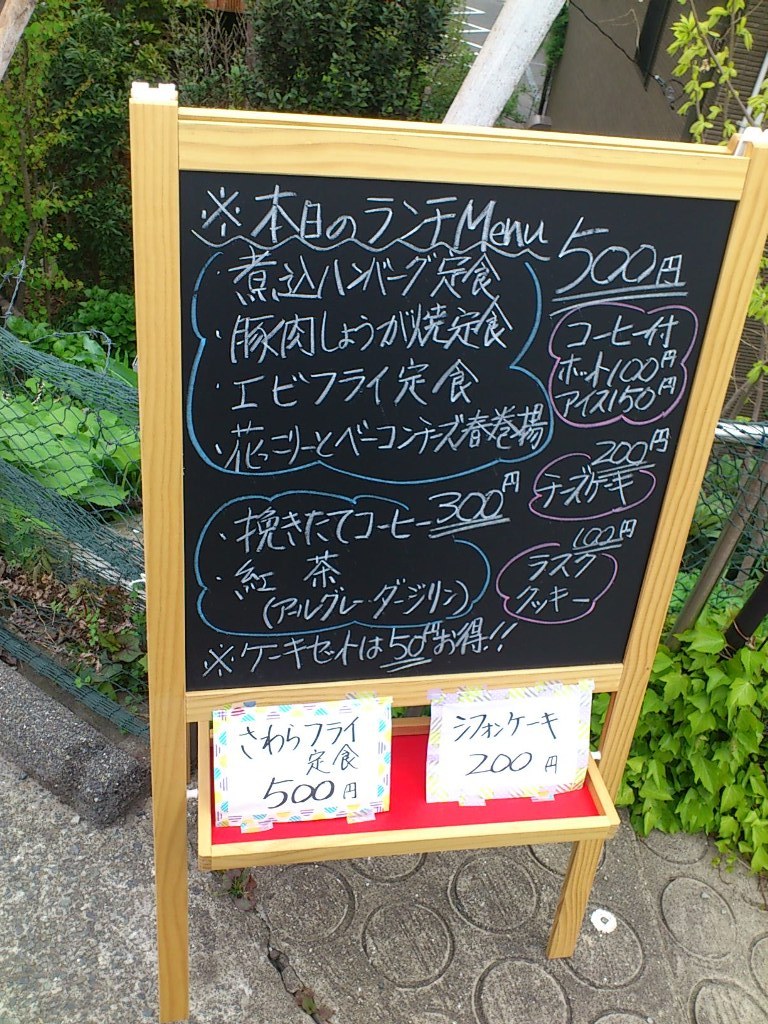 ※本日のランチMenu
500円
・煮込ハンバーグ定食
・豚肉しょうが焼定食
・エビフライ定食
・花っこりーとベーコンチーズ春巻揚
コーヒー付
ホット100円
アイス150円
200円
チーズケーキ
・挽きたてコーヒー300円
・紅茶
(アールグレー・ダージリン)
100円
ラスク
クッキー
※ケーキセットは50円お得!!
さわらフライ
定食
500円
シフォンケーキ
200円